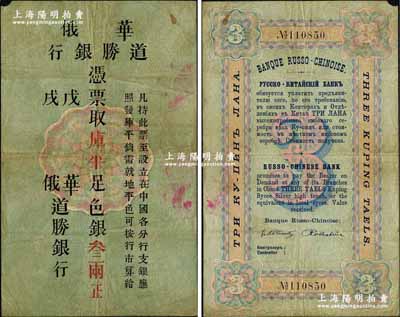 上海陽明拍賣
www.sh-yangming.com
俄華
行銀勝道
憑票取庫平足色銀叁兩正
戊戌
華俄道勝銀行
凡持此票至設立在中國各分行支銀應
照發庫平倘需就地平色可按行市算給
上海陽明拍賣
3
№110850
3
BANQUE RUSSO-CHINOISE.
РУССКО-КИТАЙСКІЙ БАНКЪ
ТРИ КУ-ПЕНЪ ЛАНА.
THREE KUPING TAELS.
RUSSO-CHINESE BANK
promises to pay the Bearer on
Demand at any of its Branches
in China THREE TAELS Kuping
Sycee Silver high touch, or the
equivalent in local Sycee. Value
received.
Banque Russo-Chinoise:
Контролеръ
Controller
3
№110850
3